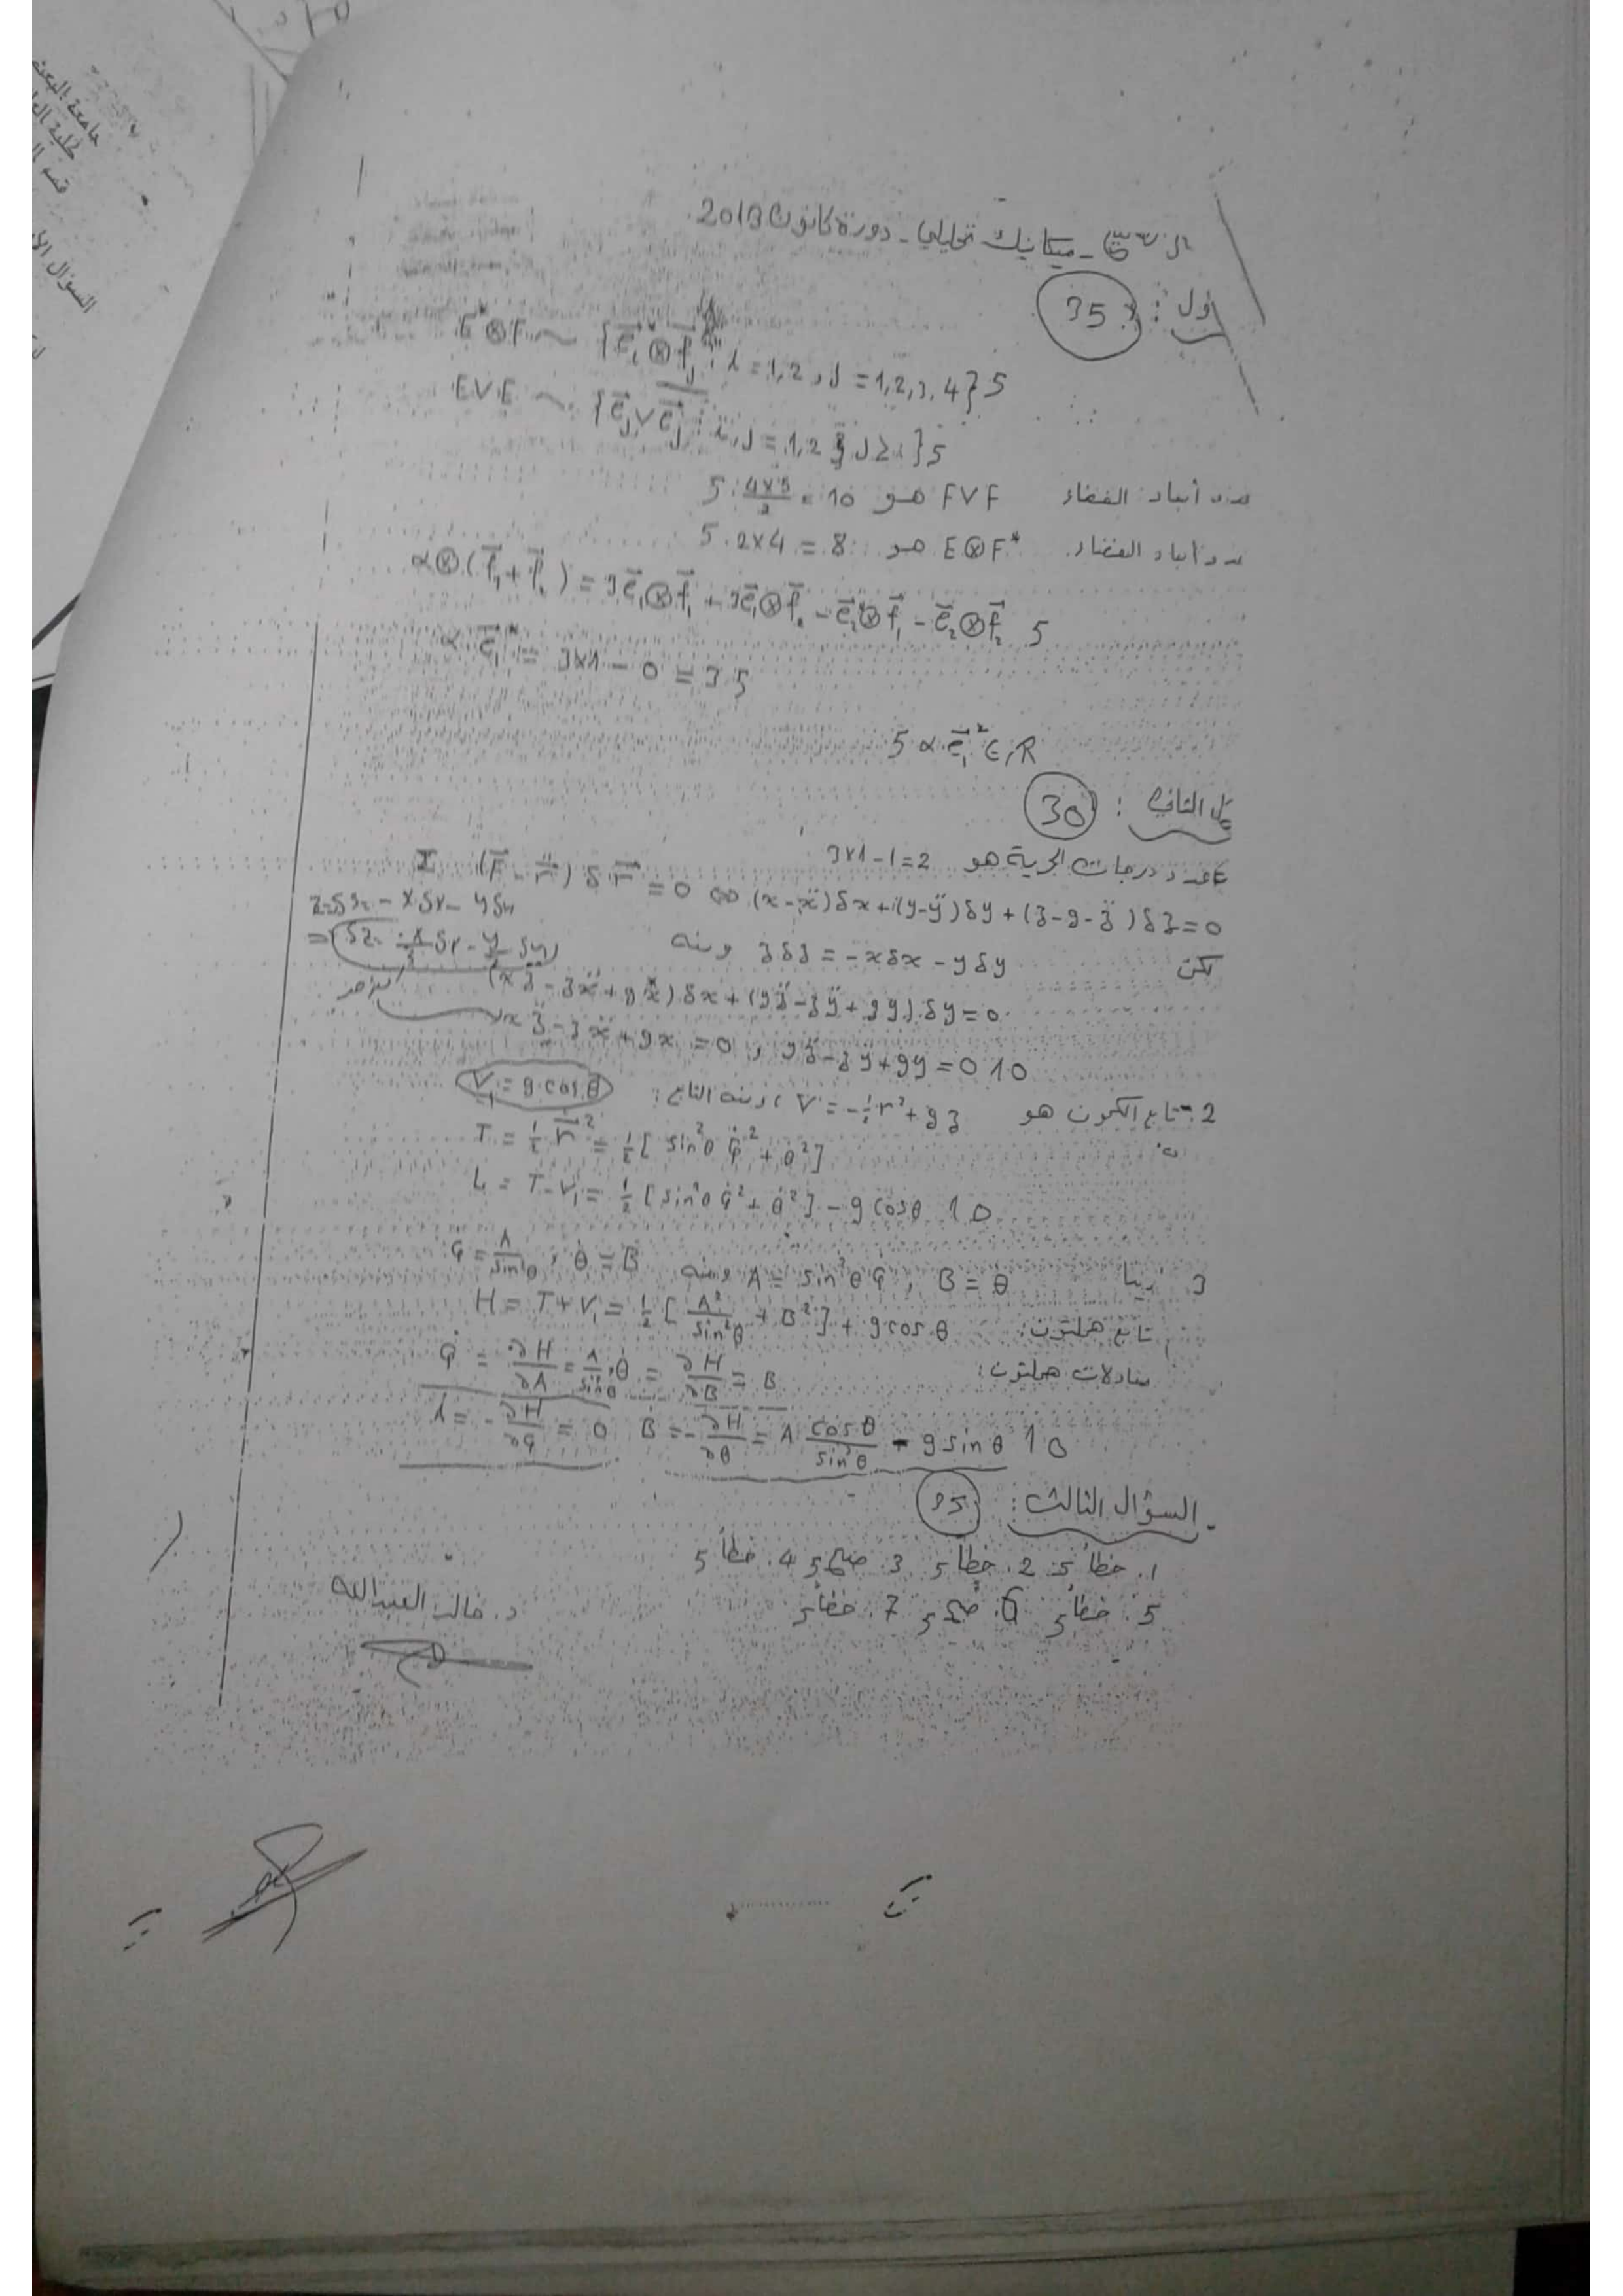 جامعة البعث
كلية
السؤال
ميكانيك تحليلي - دورة كانون 2013
أول : 35
E*⊗F ~ {e⃗ᵢ*⊗f⃗ⱼ ; i = 1,2 , j = 1,2,3,4} 5
EVE ~ {e⃗ⱼVe⃗ⱼ ; i,j = 1,2 و j≥i} 5
عدد أبعاد الفضاء FVF هو 10 = 4×5/2 . 5
عدد أبعاد الفضاء E⊗F* هو 8 = 2×4 . 5
α⊗(f⃗₁+f⃗₂) = 3e⃗₁⊗f⃗₁ + 3e⃗₁⊗f⃗₂ - e⃗₂⊗f⃗₁ - e⃗₂⊗f⃗₂ 5
α e⃗₁* = 3×1 - 0 = 3 5
5 α.e⃗₁² ∈ R
الثاني : 30
عدد درجات الحرية هو 3×1-1=2
Σ (F⃗ - r⃗̈) δr⃗ = 0 ⇔ (x-ẍ)δx+(y-ÿ)δy+(z-g-z̈)δz=0
zδz = -xδx - yδy
= δz = -x/z δx - y/z δy
لكن zδz = -xδx - yδy ومنه
(xz̈ - zẍ + gx)δx + (yz̈ - zÿ + gy)δy=0
xz̈ - zẍ + gx = 0 , yz̈ - zÿ + gy = 0 10
2- تابع الكمون هو V = -½r² + gz ومنه التابع : V₁ = g cos θ
T = ½ r⃗̇² = ½[sin²θ φ̇² + θ̇²]
L = T-V₁ = ½[sin²θ φ̇² + θ̇²] - g cosθ 10
3 لدينا A = sin²θ φ̇ , B = θ̇ ومنه φ̇ = A/sin²θ , θ̇ = B
تابع هملتون: H = T+V₁ = ½[A²/sin²θ + B²] + g cos θ
معادلات هملتون: φ̇ = ∂H/∂A = A/sin²θ , θ̇ = ∂H/∂B = B
Ȧ = -∂H/∂φ = 0 Ḃ = -∂H/∂θ = A cosθ/sin³θ - g sin θ 10
السؤال الثالث : 35
1. خطأ 5 2. خطأ 5 3. صح 5 4. خطأ 5
5. خطأ 5 6. صح 5 7. خطأ 5
د. خالد العبدالله